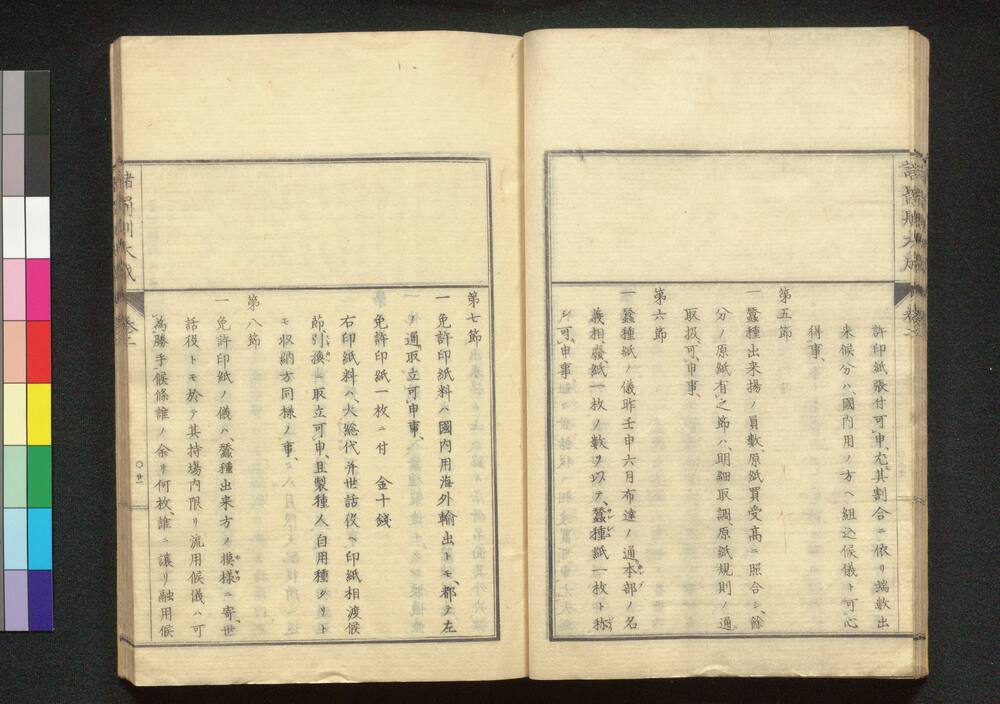 許印紙張付可申、尤其割合ニ依リ端數出
来候分ハ、國内用ノ方ヘ組込候儀ト可心
得事、
第五節
一 蠶種出来揚ノ員數、原紙買受高ニ照合シ、餘
分ノ原紙有之節ハ、明細取調、原紙規則ノ通
取扱可申事、
第六節
一 蠶種紙ノ儀昨壬申六月布達ノ通、本部ノ名
義相廢、紙一枚ノ數ヲ以テ、蠶種紙一枚ト称
シ可申事、
第七節
一 免許印紙料ハ國内用海外輸出トモ、都テ左
ノ通、取立可申事、
免許印紙一枚ニ付 金十錢
右印紙料ハ、大総代并世話役ヘ印紙相渡候
節、引換ニ取立可申、且製種人自用種タリト
モ収納方同様ノ事、
第八節
一 免許印紙ノ儀ハ、蠶種出来方ノ模様ニ寄、世
話役トモ於テ其持場内限リ流用候儀ハ可
為勝手候條誰ノ余リ何枚、誰ニ讓リ融用候